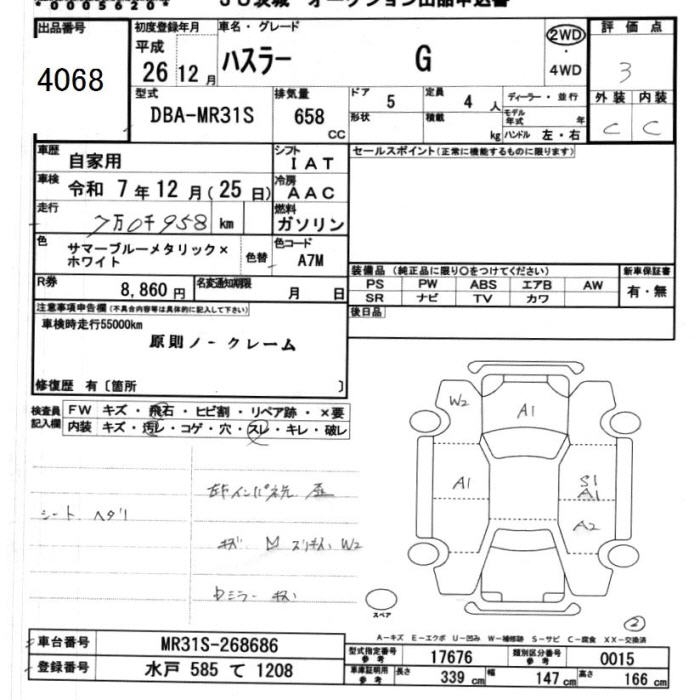 *00005620*
JU茨城 オークション出品申込書
出品番号
4068
初度登録年月
平成
26 12 月
車名・グレード
ハスラー G
2WD
・
4WD
評価点
3
外装 内装
C C
型式
DBA-MR31S
排気量
658
CC
ドア 5
定員 4 人
形状
積載 kg
ディーラー・並行
モデル年式 年
ハンドル 左・右
車歴
自家用
車検
令和 7 年 12 月(25 日)
走行
7万0千958 km
色
サマーブルーメタリック×
ホワイト
色替
シフト
I A T
冷房
A A C
燃料
ガソリン
色コード
A7M
セールスポイント(正常に機能するものに限ります)
R券
8,860 円
名変通知期限
月 日
装備品(純正品に限り○をつけてください)
PS PW ABS エアB AW
SR ナビ TV カワ
新車保証書
有・無
後日品
注意事項申告欄(不具合内容等は具体的に記入して下さい)
車検時走行55000km
原則ノークレーム
修復歴 有〔箇所 〕
検査員
記入欄
FW キズ・飛石・ヒビ割・リペア跡・×要
内装 キズ・汚レ・コゲ・穴・スレ・キレ・破レ
シート ヘタリ
キズ W2
W2
A1
A1
S1
A1
A2
スペア
2
A-キズ E-エクボ U-凹み W-補修跡 S-サビ C-腐食 XX-交換済
車台番号
MR31S-268686
登録番号
水戸 585 て 1208
型式指定番号
参考
17676
類別区分番号
参考
0015
車庫証明用
参考
長さ 339 cm 幅 147 cm 高さ 166 cm